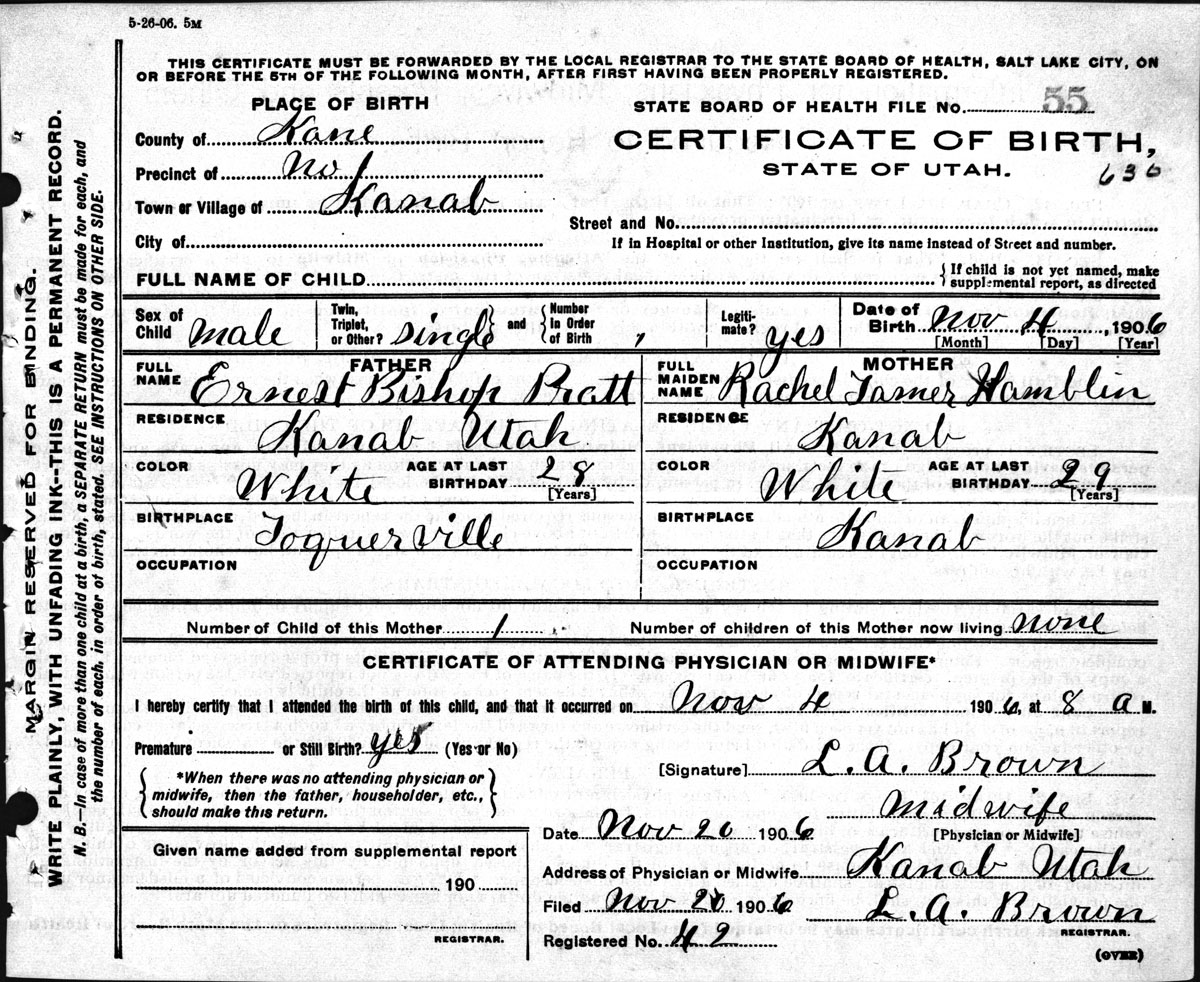 5-26-06. 5M
THIS CERTIFICATE MUST BE FORWARDED BY THE LOCAL REGISTRAR TO THE STATE BOARD OF HEALTH, SALT LAKE CITY, ON
OR BEFORE THE 5TH OF THE FOLLOWING MONTH, AFTER FIRST HAVING BEEN PROPERLY REGISTERED.
PLACE OF BIRTH
STATE BOARD OF HEALTH FILE No. 55
County of Kane
CERTIFICATE OF BIRTH,
STATE OF UTAH.
636
Precinct of No 1
Town or Village of Kanab
Street and No.
City of
If in Hospital or other Institution, give its name instead of Street and number.
FULL NAME OF CHILD
If child is not yet named, make
supplemental report, as directed
Sex of Child male
Twin, Triplet, or Other? single and Number In Order of Birth
Legiti-mate? yes
Date of Birth Nov 4, 1906
[Month] [Day] [Year]
FATHER
FULL NAME Ernest Bishop Pratt
RESIDENCE Kanab Utah
COLOR White AGE AT LAST BIRTHDAY 28 [Years]
BIRTHPLACE Toquerville
OCCUPATION
MOTHER
FULL MAIDEN NAME Rachel Tamer Hamblin
RESIDENCE Kanab
COLOR White AGE AT LAST BIRTHDAY 29 [Years]
BIRTHPLACE Kanab
OCCUPATION
Number of Child of this Mother 1 Number of children of this Mother now living none
CERTIFICATE OF ATTENDING PHYSICIAN OR MIDWIFE*
I hereby certify that I attended the birth of this child, and that it occurred on Nov 4 1906, at 8 a M.
Premature or Still Birth? yes (Yes or No)
*When there was no attending physician or
midwife, then the father, householder, etc.,
should make this return.
[Signature] L. A. Brown
Midwife
[Physician or Midwife]
Date Nov 20 1906
Address of Physician or Midwife Kanab Utah
Filed Nov 20 1906 L. A. Brown
REGISTRAR.
Registered No. 42
(OVER)
Given name added from supplemental report
190
REGISTRAR.
MARGIN RESERVED FOR BINDING.
WRITE PLAINLY, WITH UNFADING INK-THIS IS A PERMANENT RECORD.
N. B.—In case of more than one child at a birth, a SEPARATE RETURN must be made for each, and
the number of each, in order of birth, stated. SEE INSTRUCTIONS ON OTHER SIDE.